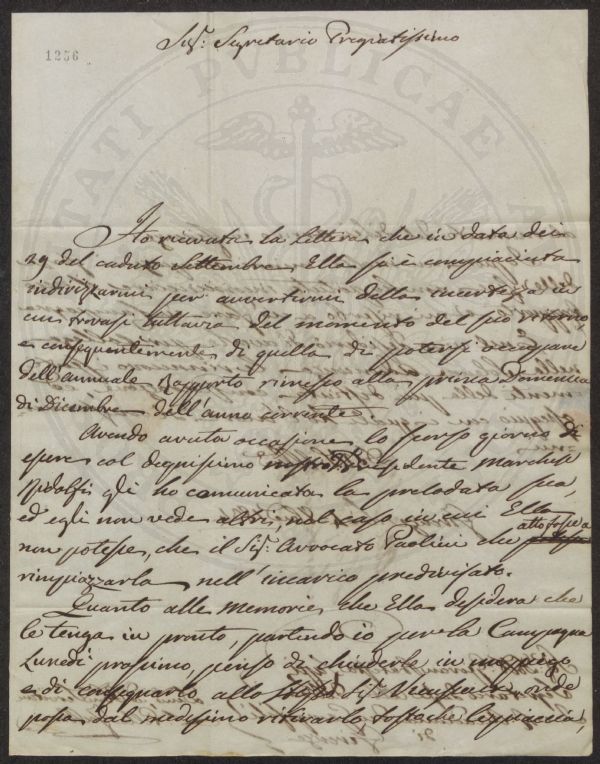 1256
Sig: Segretario Pregiatissimo
Ho ricevuta la lettera che in data dei
29 del caduto Settembre Ella si è compiaciuta
indirizzarmi per avvertirmi della incertezza in
cui trovasi tuttavia del momento del suo ritorno,
e conseguentemente di quella di potersi occupare
dell'annuale Rapporto rimesso alla prima Domenica
di Dicembre dell'anno corrente.
Avendo avuta occasione lo scorso giorno di
essere col degnissimo nostro Presidente Marchese
Ridolfi gli ho comunicata la prelodata sua,
ed egli non vede altri, nel caso in cui Ella
non potesse, che il Sig: Avvocato Paolini che atto fosse a
rimpiazzarla nell'incarico predivisato.
Quanto alle Memorie che Ella desidera che
le tenga in pronto, partendo io per la Campagna
Lunedì prossimo, penso di chiuderle in un piego
e di consegnarlo allo stesso Sig: onde
possa dal medesimo ritirarlo tosto che le piaccia,